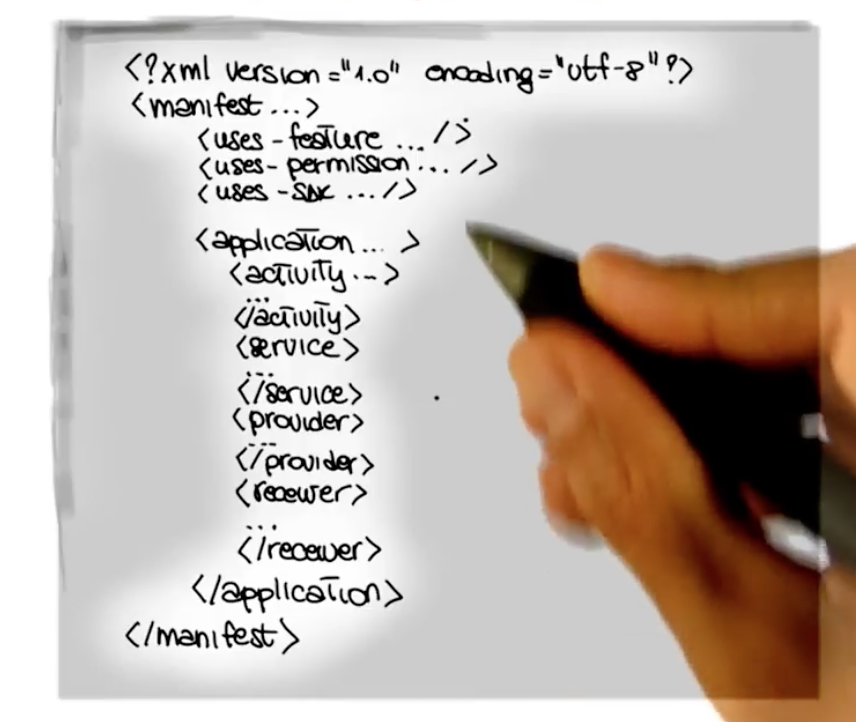 <?xml version="1.0" encoding="utf-8"?>
<manifest ...>
<uses-feature ... />
<uses-permission ... />
<uses-SDK .../>
<application ... >
<activity ...>
...
</activity>
<service>
...
</service>
<provider>
...
</provider>
<receiver>
...
</receiver>
</application>
</manifest>